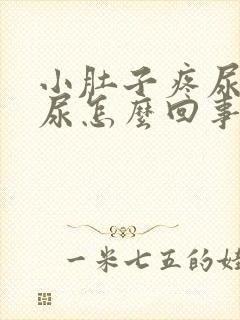 小肚子疼尿
尿怎麼回事
一米七五的娃